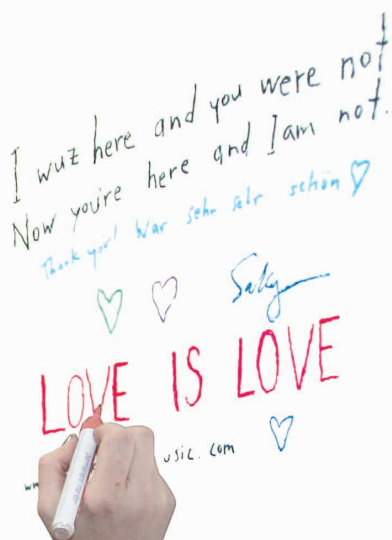 I wuz here and you were not
Now you're here and I am not.
Thank you! War sehr sehr schön
LOVE IS LOVE
usic.com